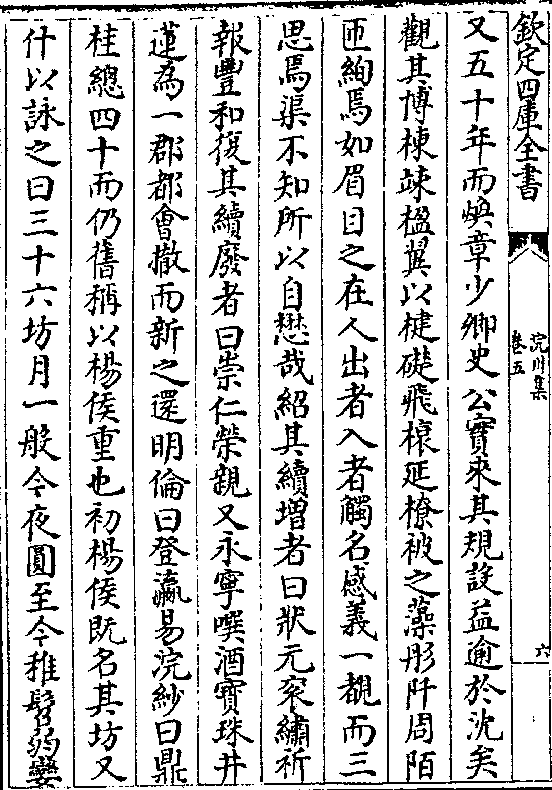 欽定四庫全書
浣川集
卷五
六
又五十年而煥章少卿史公實來其規設益逾於沈矣
觀其博棟竦楹翼以楗礎飛榱延橑被之藻彤阡周陌
匝絢焉如眉目之在人出者入者觸名感義一覩而三
思焉渠不知所以自懋哉紹其續增者曰狀元穼繡祈
報豐和復其續廢者曰崇仁榮親又永寧噀酒寶珠井
蓮為一郡都會撤而新之還明倫曰登瀛易浣紗曰鼎
桂總四十而仍舊稱以楊侯重也初楊侯既名其坊又
什以詠之曰三十六坊月一般今夜圓至今稚髫弱孌